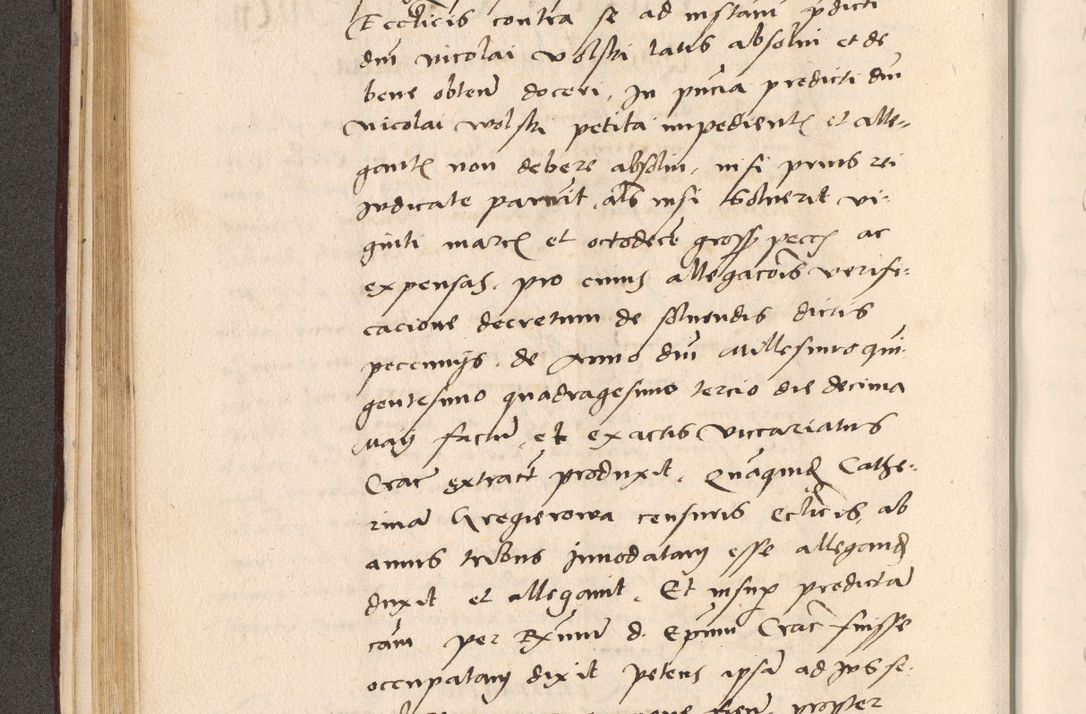 Ecclicis contra se ad instam pdicti
dni nicolai volski latis absolui et de
bene obtem doceri, In pncia predicti dni
Nicolai wolski petita impedient et alle-
gant non debere absolui, nisi prius rei
Iudicate paruit, als nisi soluerit vi-
ginti marc et octodece gross pecc ac
expensas, pro cuius allegacois verifi-
cacione decretum de soluendis dictis
peccunijs, de Anno dni Millesimo quin-
gentesimo quadragesimo tercio die decima
Maij factu, et ex actis viccariatus
Crac extract produxit, Quaquid Cathe-
rina Gregierowa censuris Ecclicis, ab
annis tribus Innodatam esse allegand
duxit et allegauit, Et insup predicta
cam per Rxmum d. Epum Crac fuisse
occupatam dixit petens ipsa ad Ius se-
propter